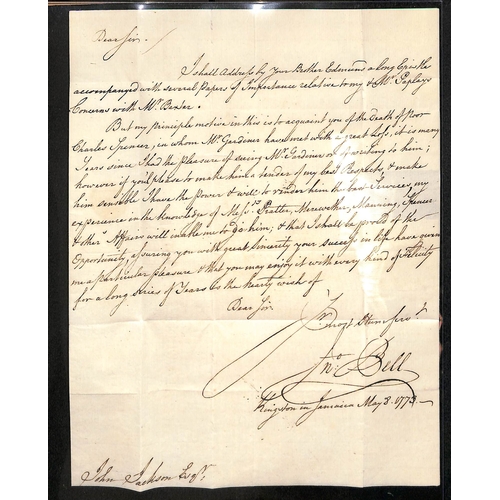 Dear Sir.
I shall Address by your Brother Edmund a long Epistle
accompanied with several Papers of Importance relative to my & Mr. Pepleys
Concerns with Mr. Baxter.
But my principle motive in this is to acquaint you of the Death of poor
Charles Spencer, in whom Mr. Gardiner have met with a great Loss; it is many
Years since I had the Pleasure of seeing Mr. Gardiner or of writing to him;
however if you'l please to make him a tender of my best Respects, & make
him sensible I have the power & will to render him the best Services, my
experience in the knowledge of Messrs. Pratter, Merewether, Manning, Spencer
& thr. Affairs will inable me to do him; & that I shall be proud of the
Opportunity, assuring you with great sincerity your success in life have given
me a particular pleasure & that you may enjoy it with every kind of felicity
for a long series of Years is the hearty wish of
Dear Sir
Yr. most Hum. Servt.
Jno. Bell
Kingston in Jamaica May 8. 1773
John Jackson Esqr.